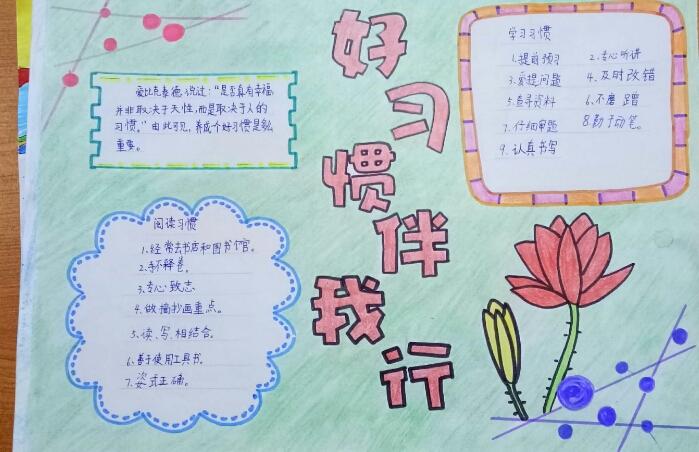 好习惯伴我行
爱比克泰德说过:“是否真有幸福
并非取决于天性,而是取决于人的
习惯。”由此可见,养成个好习惯是多么
重要。
学习习惯
1.提前预习 2.专心听讲
3.爱提问题 4.及时改错
5.查寻资料 6.不磨蹭
7.仔细审题 8.勤于动笔。
9.认真书写
阅读习惯
1.经常去书店和图书馆。
2.手不释卷。
3.专心致志
4.做摘抄画重点。
5.读、写相结合。
6.善于使用工具书。
7.姿式正确。